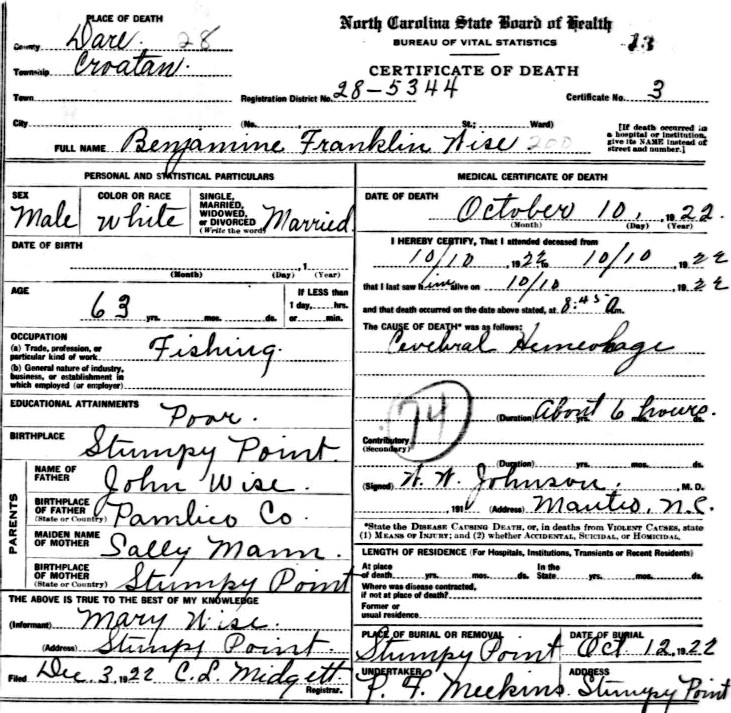 PLACE OF DEATH
North Carolina State Board of Health
BUREAU OF VITAL STATISTICS
13
County Dare. 28
Township Croatan.
CERTIFICATE OF DEATH
Town
Registration District No. 28-5344
Certificate No. 3
City
(No. St.; Ward)
[If death occurred in a hospital or institution, give its NAME instead of street and number.]
FULL NAME Benjamine Franklin Wise 200
PERSONAL AND STATISTICAL PARTICULARS
SEX
Male
COLOR OR RACE
White
SINGLE,
MARRIED,
WIDOWED,
or DIVORCED
(Write the word)
Married.
DATE OF BIRTH
, 1
(Month) (Day) (Year)
AGE
63 yrs. mos. ds.
If LESS than
1 day, hrs.
or min.
OCCUPATION
(a) Trade, profession, or
particular kind of work
Fishing.
(b) General nature of industry,
business, or establishment in
which employed (or employer)
EDUCATIONAL ATTAINMENTS
Poor.
BIRTHPLACE
Stumpy Point.
PARENTS
NAME OF
FATHER
John Wise.
BIRTHPLACE
OF FATHER
(State or Country)
Pamlico Co.
MAIDEN NAME
OF MOTHER
Sally Mann.
BIRTHPLACE
OF MOTHER
(State or Country)
Stumpy Point
THE ABOVE IS TRUE TO THE BEST OF MY KNOWLEDGE
(Informant) Mary Wise.
(Address) Stumpy Point.
Filed Dec. 3, 1922 C. L. Midgett.
Registrar.
MEDICAL CERTIFICATE OF DEATH
DATE OF DEATH
October 10, , 1922.
(Month) (Day) (Year)
I HEREBY CERTIFY, That I attended deceased from
10/10 , 1922 to 10/10 , 1922
that I last saw him alive on 10/10 , 1922
and that death occurred on the date above stated, at 8:45 Am.
The CAUSE OF DEATH* was as follows:
Cerebral Hemerohage
74
(Duration) About 6 hours. yrs. mos. ds.
Contributory
(Secondary)
(Duration) yrs. mos. ds.
(Signed) W. W. Johnson, M. D.
, 191 (Address) Manteo, N.C.
*State the DISEASE CAUSING DEATH, or, in deaths from VIOLENT CAUSES, state
(1) MEANS OF INJURY; and (2) whether ACCIDENTAL, SUICIDAL, OR HOMICIDAL.
LENGTH OF RESIDENCE (For Hospitals, Institutions, Transients or Recent Residents)
At place
of death. yrs. mos. ds.
In the
State yrs. mos. ds.
Where was disease contracted,
if not at place of death?
Former or
usual residence
PLACE OF BURIAL OR REMOVAL
Stumpy Point
DATE OF BURIAL
Oct 12, 1922
UNDERTAKER
P. F. Meekins.
ADDRESS
Stumpy Point